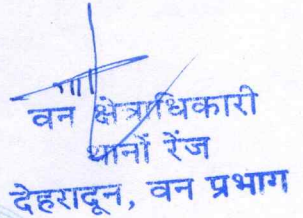 वन क्षेत्राधिकारी
थानों रेंज
देहरादून, वन प्रभाग